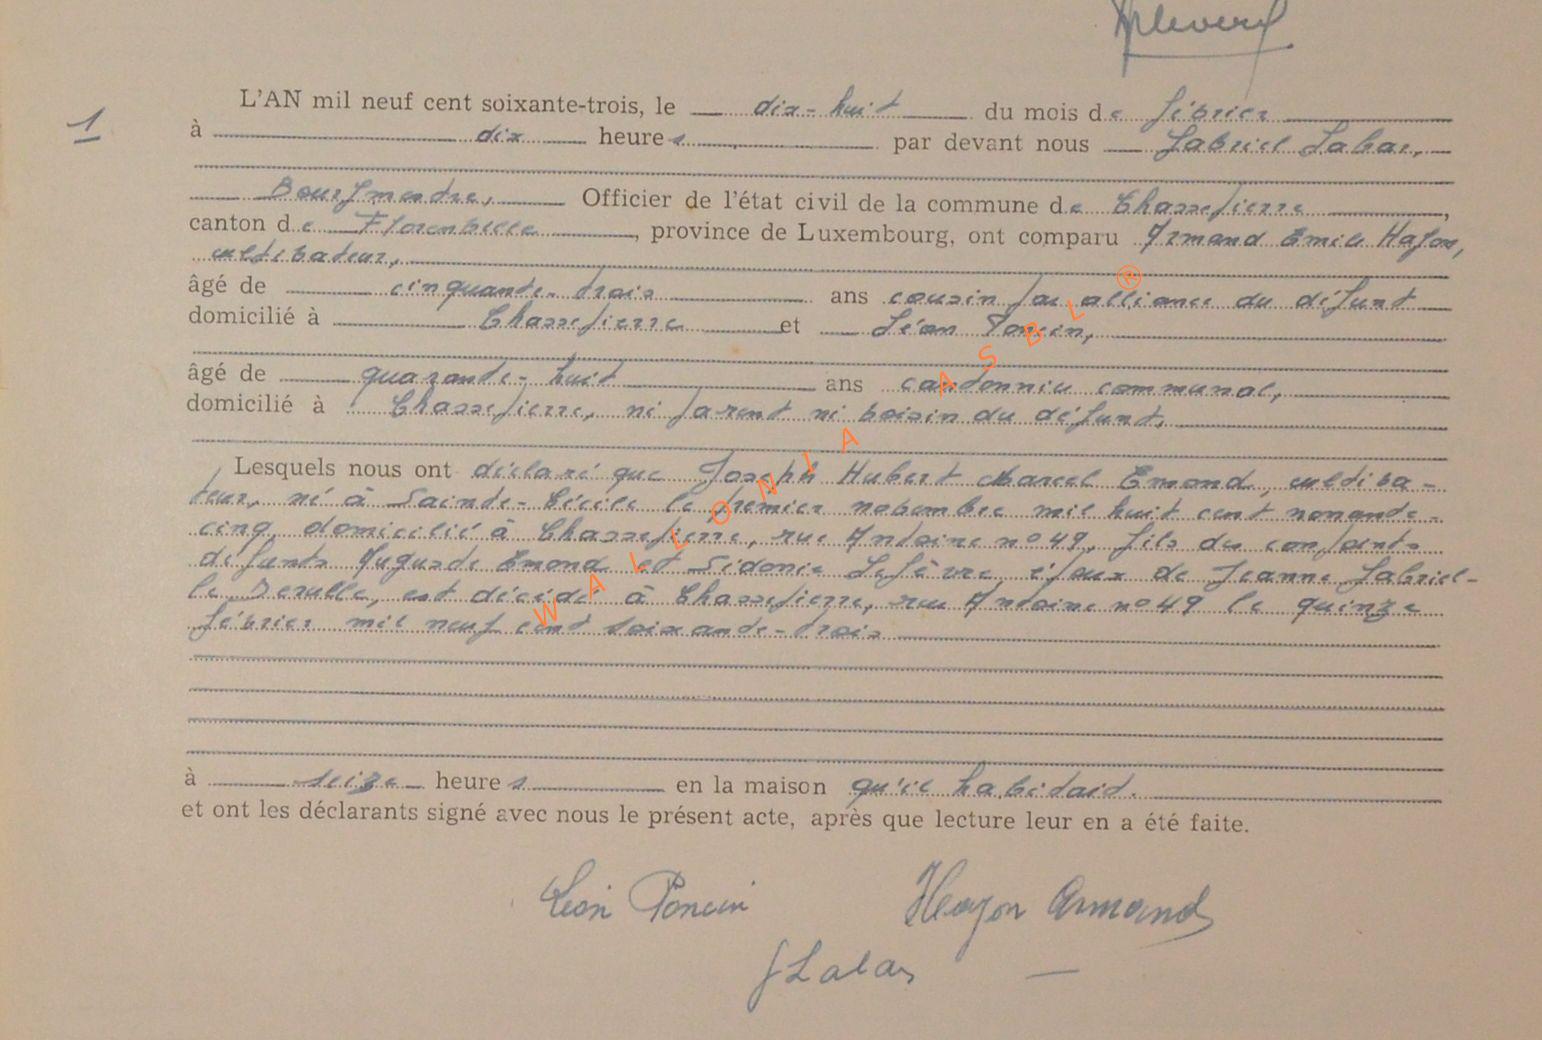 1
L'AN mil neuf cent soixante-trois, le dix-huit du mois de février
à dix heures par devant nous Gabriel Labar,
Bourgmestre, Officier de l'état civil de la commune de Chassepierre,
canton de Florenville, province de Luxembourg, ont comparu Armand Emile Hayon,
cultivateur,
âgé de cinquante-trois ans cousin par alliance du défunt
domicilié à Chassepierre et Léon Poncin,
âgé de quarante-huit ans cantonnier communal,
domicilié à Chassepierre, ni parent ni voisin du défunt,
Lesquels nous ont déclaré que Joseph Hubert Marcel Emond, cultiva-
teur, né à Sainte-Cécile le premier novembre mil huit cent nonante-
cinq, domicilié à Chassepierre, rue Antoine n°49, fils des conjoints
défunts Auguste Emond et Sidonie Lefèvre, époux de Jeanne Gabriel-
le Derulle, est décédé à Chassepierre, rue Antoine n°49 le quinze
février mil neuf cent soixante-trois
à seize heures en la maison qu'il habitait.
et ont les déclarants signé avec nous le présent acte, après que lecture leur en a été faite.
Léon Poncin Hayon Armand
G Labar
WALLONIA ASBL ®